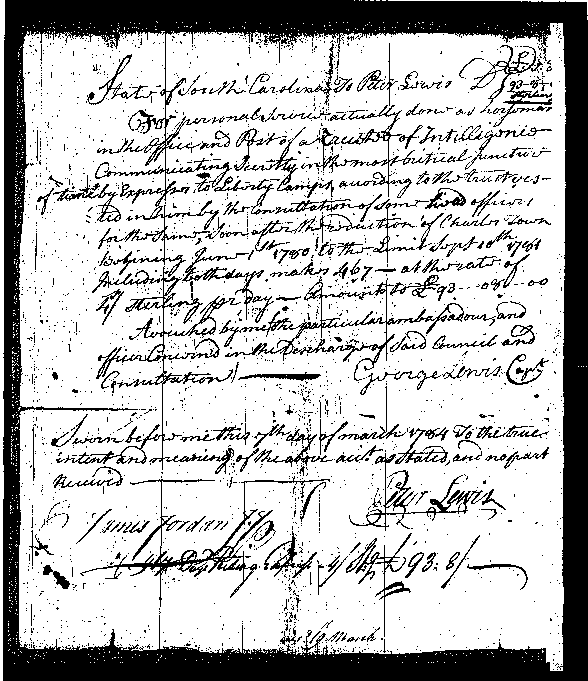 State of South Carolina To Peter Lewis Dr £93
93-8/-
Sterling
For personal Service actually done as horseman
in the Office and Post of a Trustee of Intelligence
Communicating Secretly in the most critical juncture
of time by Expresses to Liberty Camps, acording to the trust ves-
ted in him by the Consultation of some head officers
for the Same, Soon after the reduction of Charles Town
Be gining June 1st 1780 to the Limit Sept 10th 1781
Including both days makes 467 — at the rate of
4/ Sterling pr day — Amounts to £93 — 08 — 00
Avouched by me the particular ambassadour, and
officer Concernd in the Discharge of Said Council and
Consultation) — George Lewis Capt
Sworn before me this 7th day of march 1784 To the true
intent and meaning of the above acct as Stated, and no part
Received —
Peter Lewis
James Jordan J.P.
467 Days Riding @ 4/ £93..8/—
March